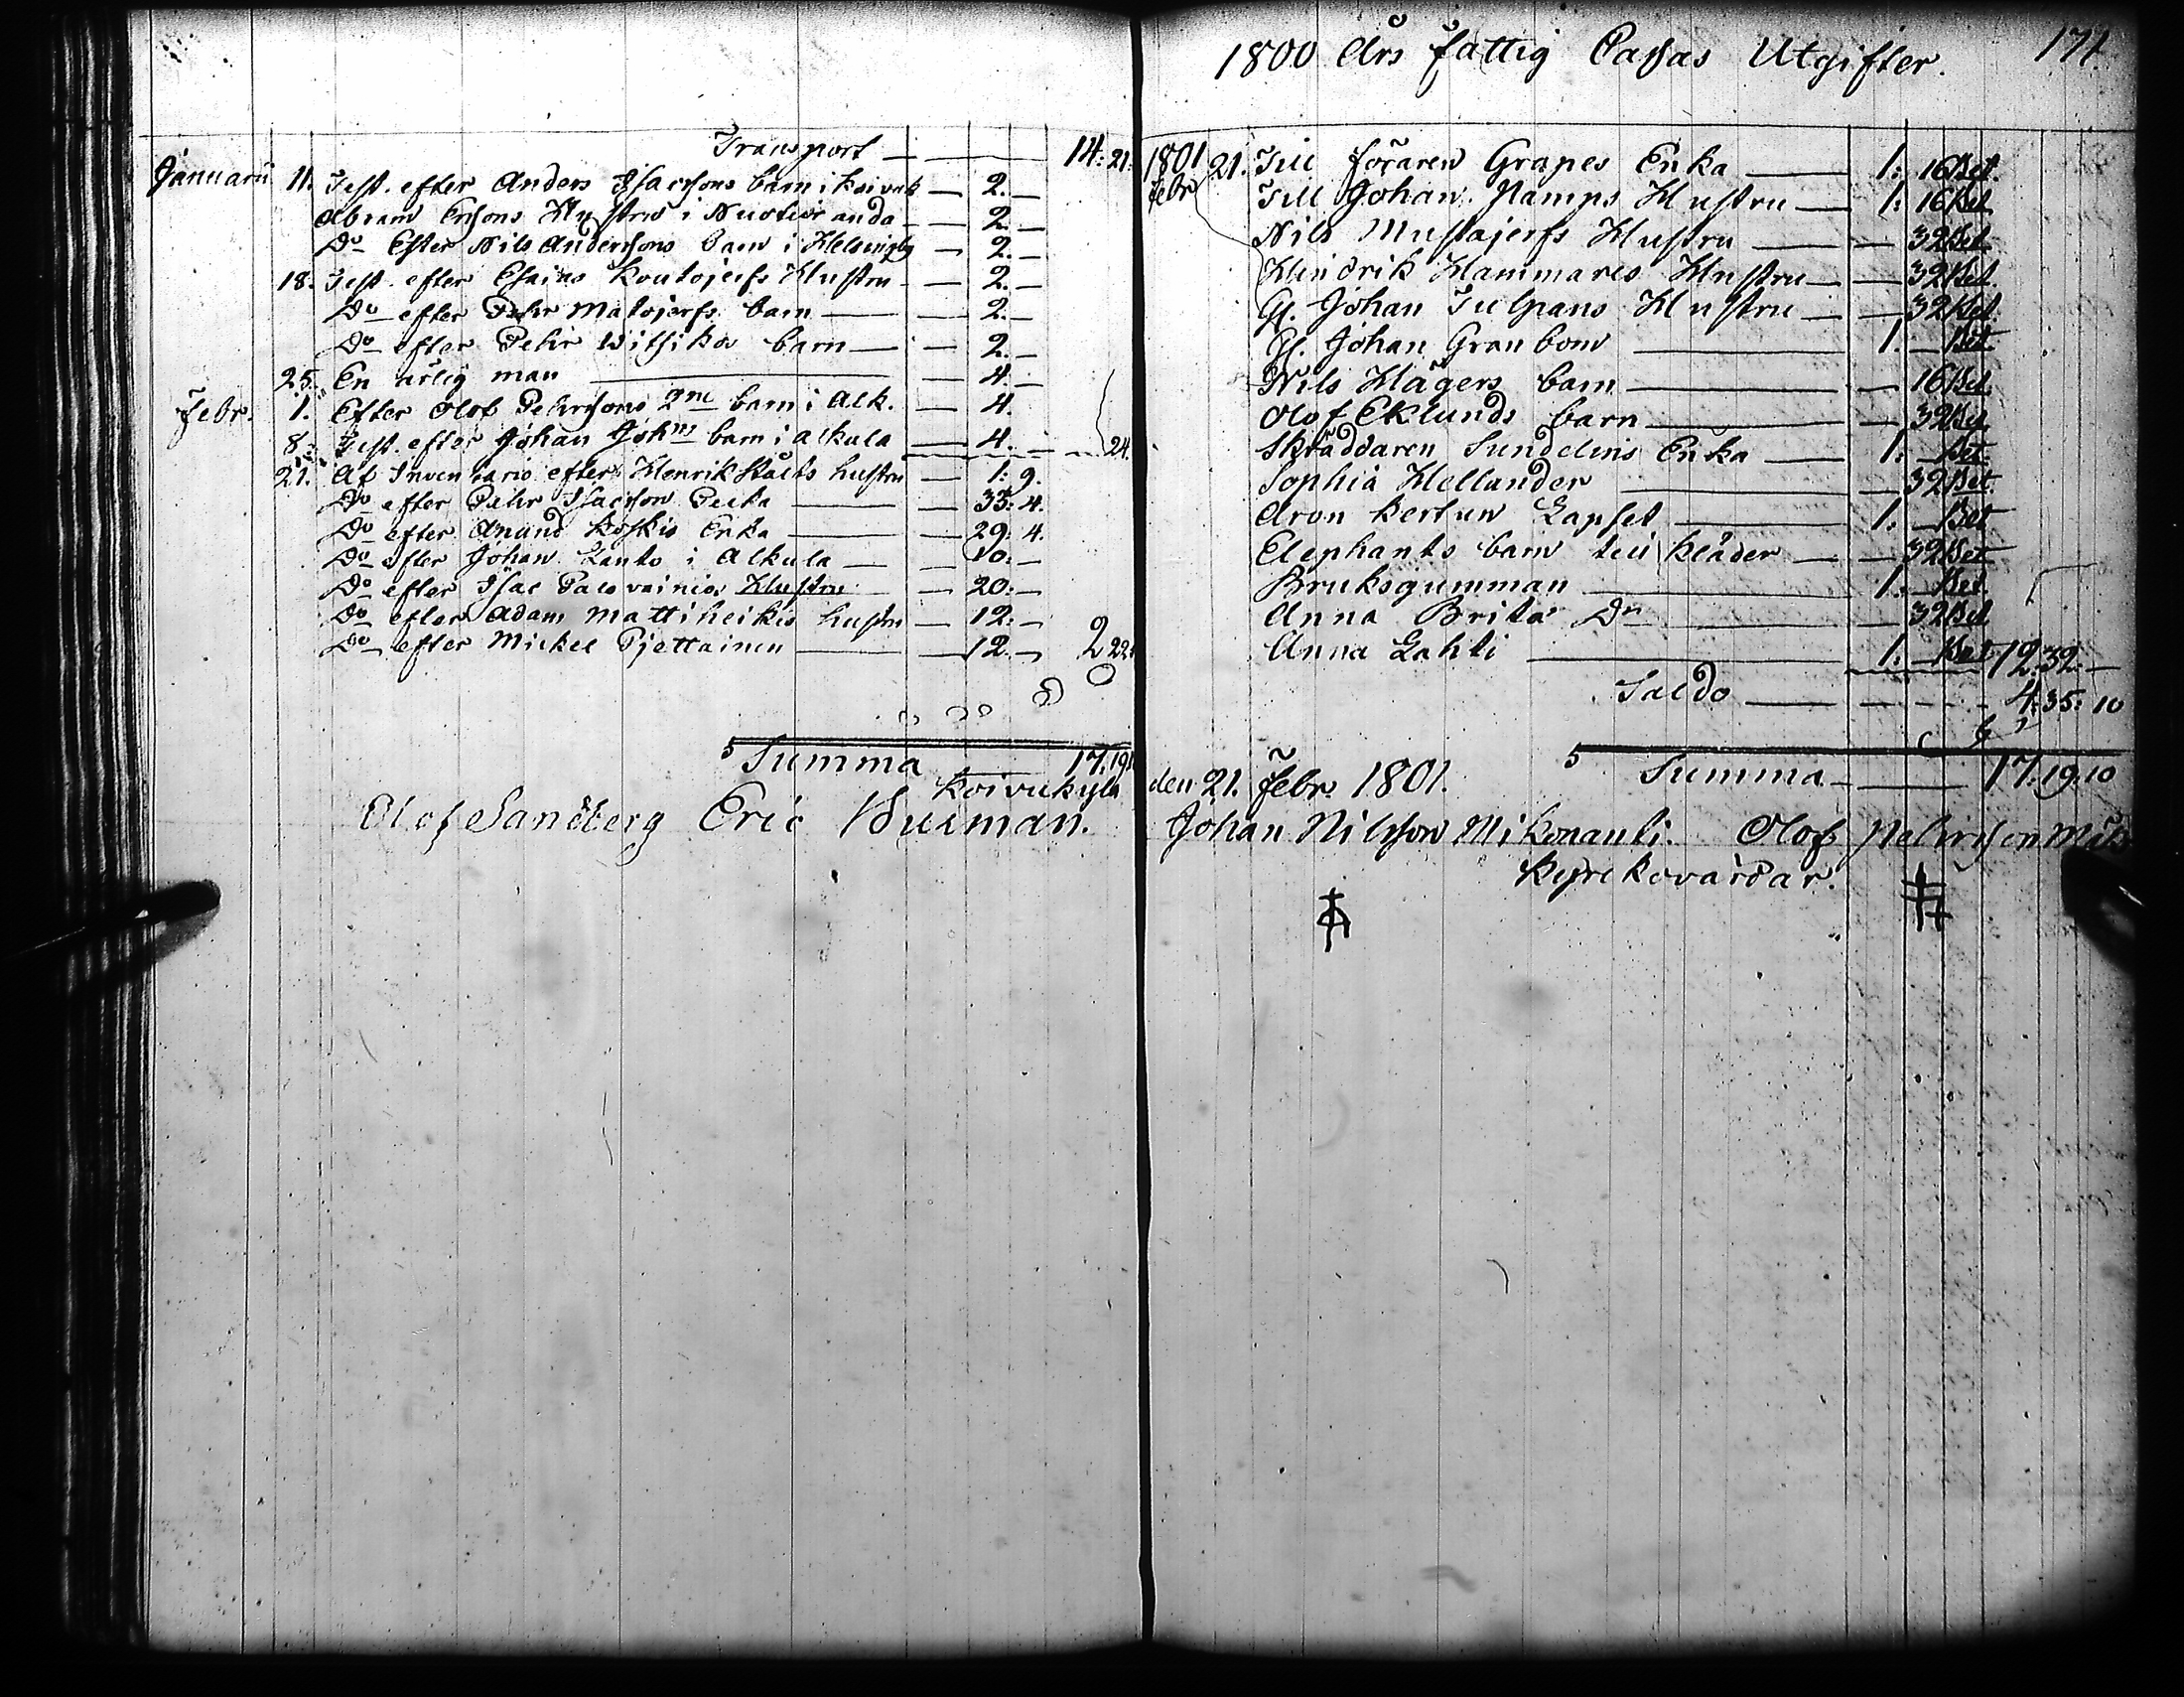 Transport — 14: 21.
Januarii 11. Test. efter Anders Isacssons barn i Koivuk — 2. —
Abram Ersons Hustru i Nuotioranda — 2. —
Do Efter Nils Anderssons barn i Helsingby — 2. —
18. Test. efter Esaias Koutojerfs Hustru — 2. —
Do efter Pehr Matojerfs barn — 2. —
Do efter Pehr Witsika barn — 2. —
25. En ärlig man — 4. —
Febr. 1. Efter Olof Pehrssons 2ne barn i Alk. — 4.
8. Test. efter Johan Johns barn i Alkula — 4. — 24.
21. Af Inventario efter Henrik Ståhls hustru — 1: 9.
Do efter Pehr Isacsson Pecka — 33: 4.
Do efter Anund Koskis Enka — 29: 4.
Do efter Johan Lanto i Alkula — 10: —
Do efter Isac Palovainios Hustru — 20: —
Do efter Adam Mattiheikis hustru — 12. —
Do efter Mickel Pjettainen — 12. — 2 22.
Summa — 17: 19:
Koivukyla
Olof Sandberg Eric Burman.
1800 Års Fattig Cassas Utgifter. 171
1801 Febr 21. Till föraren Grapes Enka — 1: 16 Bet.
Till Johan Kamps Hustru — 1: 16 Bet.
Nils Mustajerfs Hustru — 32 Bet.
Hindrik Hammares Hustru — 32 Bet.
Gl. Johan Tulpans Hustru — 32 Bet.
Gl. Johan Granbom — 1. — Bet.
Nils Hägers barn — 16 Bet.
Olof Eklunds barn — 32 Bet.
Skräddaren Sundelins Enka — 1. — Bet.
Sophia Hellander — 32 Bet.
Aron Kertun Lapset — 1. — Bet
Elephants barn till kläder — 32 Bet
Bruksgumman — 1. Bet.
Anna Brita Dr — 32 Bet
Anna Lahti — 1. — Bet 12: 32. —
Saldo — 4: 35: 10
Summa — 17: 19: 10
den 21. Febr. 1801.
Johan Nilsson Mikonanti. Olof Pehrsson
Kyrkovärdar.